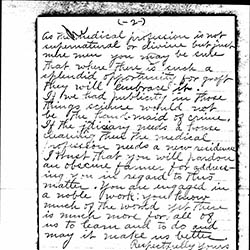 (-2-)
As the medical profession is not
supernatural or divine but just
mere men you may be sure
that when there is such a
splendid opportunity for graft
they will embrace it.
If we had publicity in those
things science would not
be the hand-maid of crime.
If the judiciary needs a house
cleaning and the medical
profession needs a new residence
I trust that you will pardon
an obscure farmer for address-
ing you in regard to this
matter. You are engaged in
a noble work; you know
much of the world yet there
is much more for all of
us to learn and to do and
may it make us better
Respectfully Yours